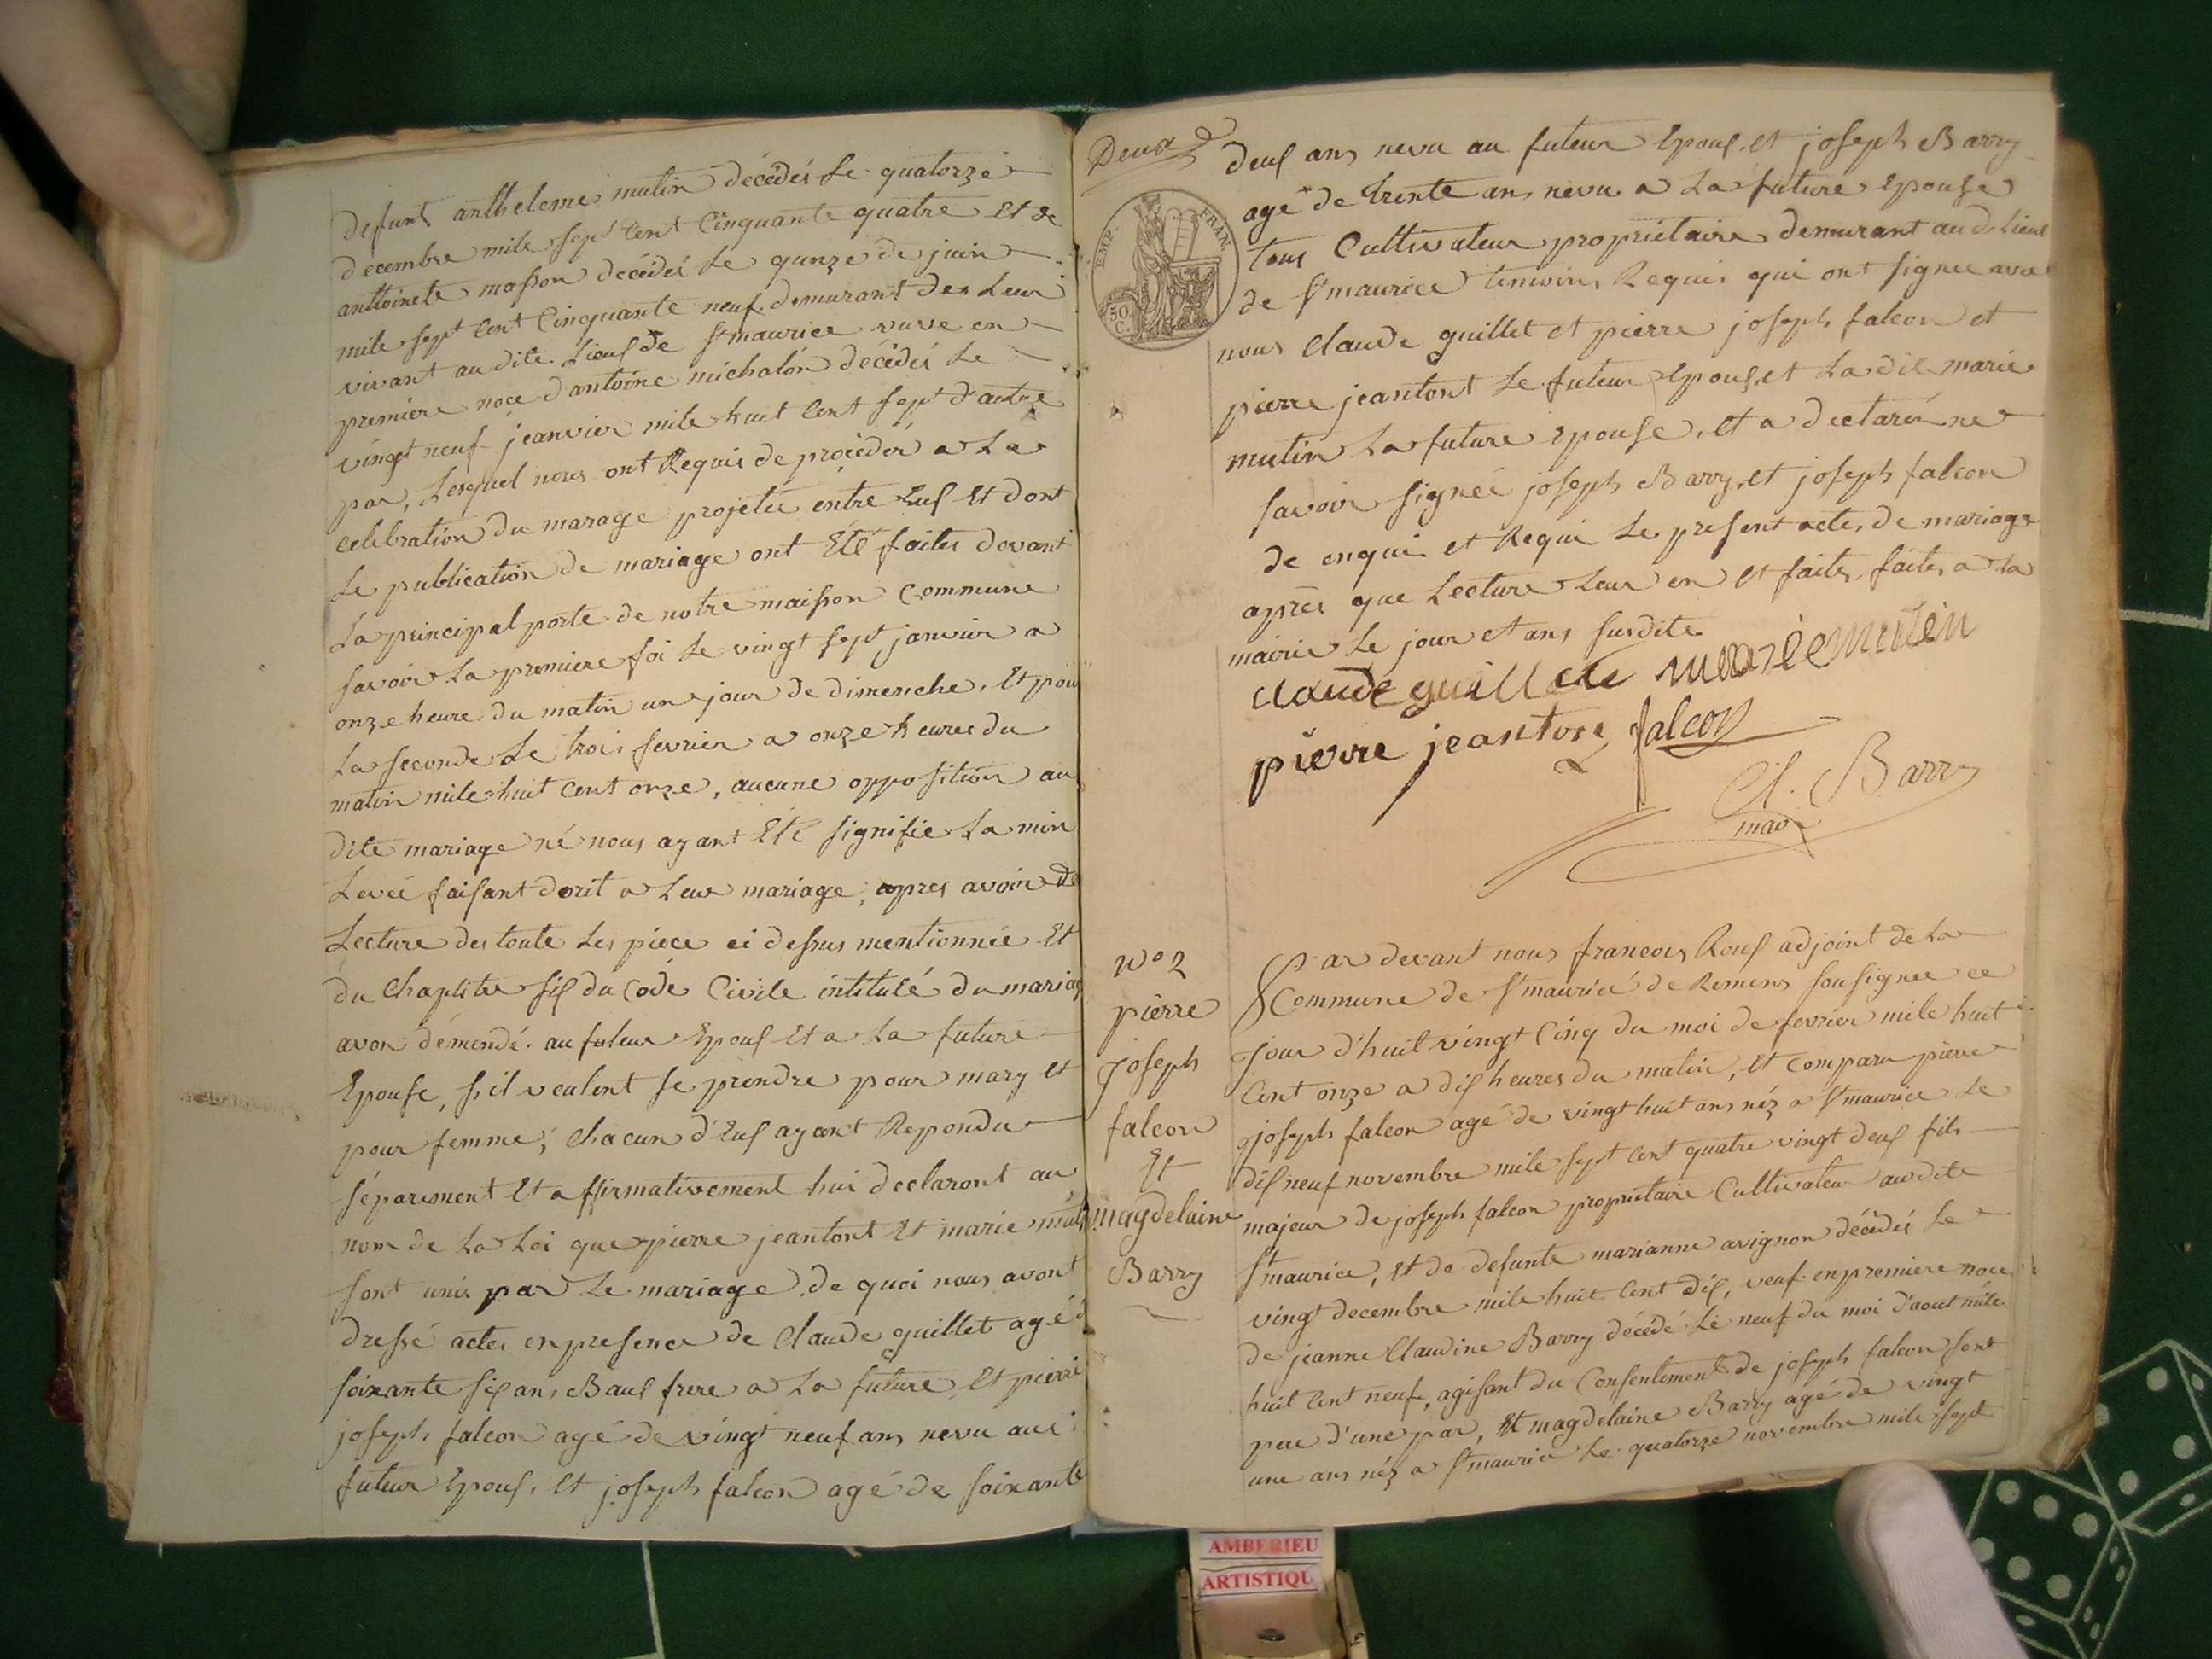 defunt antheleme mutin décédéi Le quatorze
decembre mile sept Cent Cinquante quatre et de
anttoinete masson décédéi Le qunze de juin
mile sept Cent Cinquante neuf demurant des Leur
vivant au dite Lieux de St maurice vuve en
premiere noce d'antoine michalon décédéi Le
vingt neuf jeanvier mile huit Cent sept d'autre
par, Lesquel nous ont Requis de procéder a La
celebration du marage projetée entre Eux Et dont
Le publication de mariage ont Été faites devant
La principal porte de notre maisson Commune
savoir La premiere foi Le vingt sept janvier a
onze heure du matin un jour de dimenche, Et pour
La seconde Le trois fevrier a onze heures du
matin mile huit Cent onze, aucune opposition au
dite mariage né nous ayant Eté signifie La min
Leveé faisant dorit a Leur mariage, apres avoir de
Lecture des toute Les piece ci dessus mentionnée Et
du Chaplitre six du Code Civile intitulé du mariag
avon démendé au futeur Epoux Et a La future
Epouse, s'il veulent se prendre pour mary et
pour femme; Chacun d'Eux ayant Repondu
séparement Et affirmativement hui declaront au
nom de La Loi que pierre jeantont Et marie muti
sont unis par Le mariage de quoi nous avont
dressé actes en presence de Claude guillet agé d
soixante six ans Baux frere a La future Et pierre
joseph falcon agé de vingt neuf ans nevu aui
futeur Epoux, Et joseph falcon agé de soixante
Deux
EMP. FRAN.
50 C.
deux ans nevu au futeur Epoux, et joseph Barry
agé de trente ans nevu a La future Epouse
tous Cultivateur propriétaire demurant au d. Lieux
de St maurice temoins Requis qui ont signee avec
nous Claude guillet et pierre joseph falcon et
pierre jeantont Le futeur Epoux, et La dite marie
mutin La future Epouse, et a declaréi ne
savoir signeé joseph Barry, et joseph falcon
de enqui et Requi Le present actes, de mariage
après que Lecture Leur en et faites, faites a la
mairie Le jour et ans susdite
claude guillete marie mutin
pierre jeantont falcon
Cl. Barry
maire
No 2
pierre
joseph
falcon
Et
magdelaine
Barry
Par devant nous francois Roux adjoint de La
Commune de St maurice de Remens sousignee ce
jour d'huit vingt Cinq du moi de fevrier mile huit
Cent onze a dix heures du matin, Et Comparu pierre
joseph falcon agé de vingt huit ans néz a St maurice Le
dix neuf novembre mile sept Cent quatre vingt deux fils
majeur de joseph falcon propriétaire Cultivateur au dite
St maurice, Et de defunte marianne avignon décédéi Le
vingt decembre mile huit Cent dix, veuf en premiere noce
de jeanne Claudine Barry décédé Le neuf du moi d'aout mile
huit Cent neuf, agisant du Consentement de joseph falcon sont
pere d'une par, Et magdelaine Barry agé de vingt
une ans néz a St maurice Le quatorze novembre mile sept
AMBERIEU
ARTISTIQU